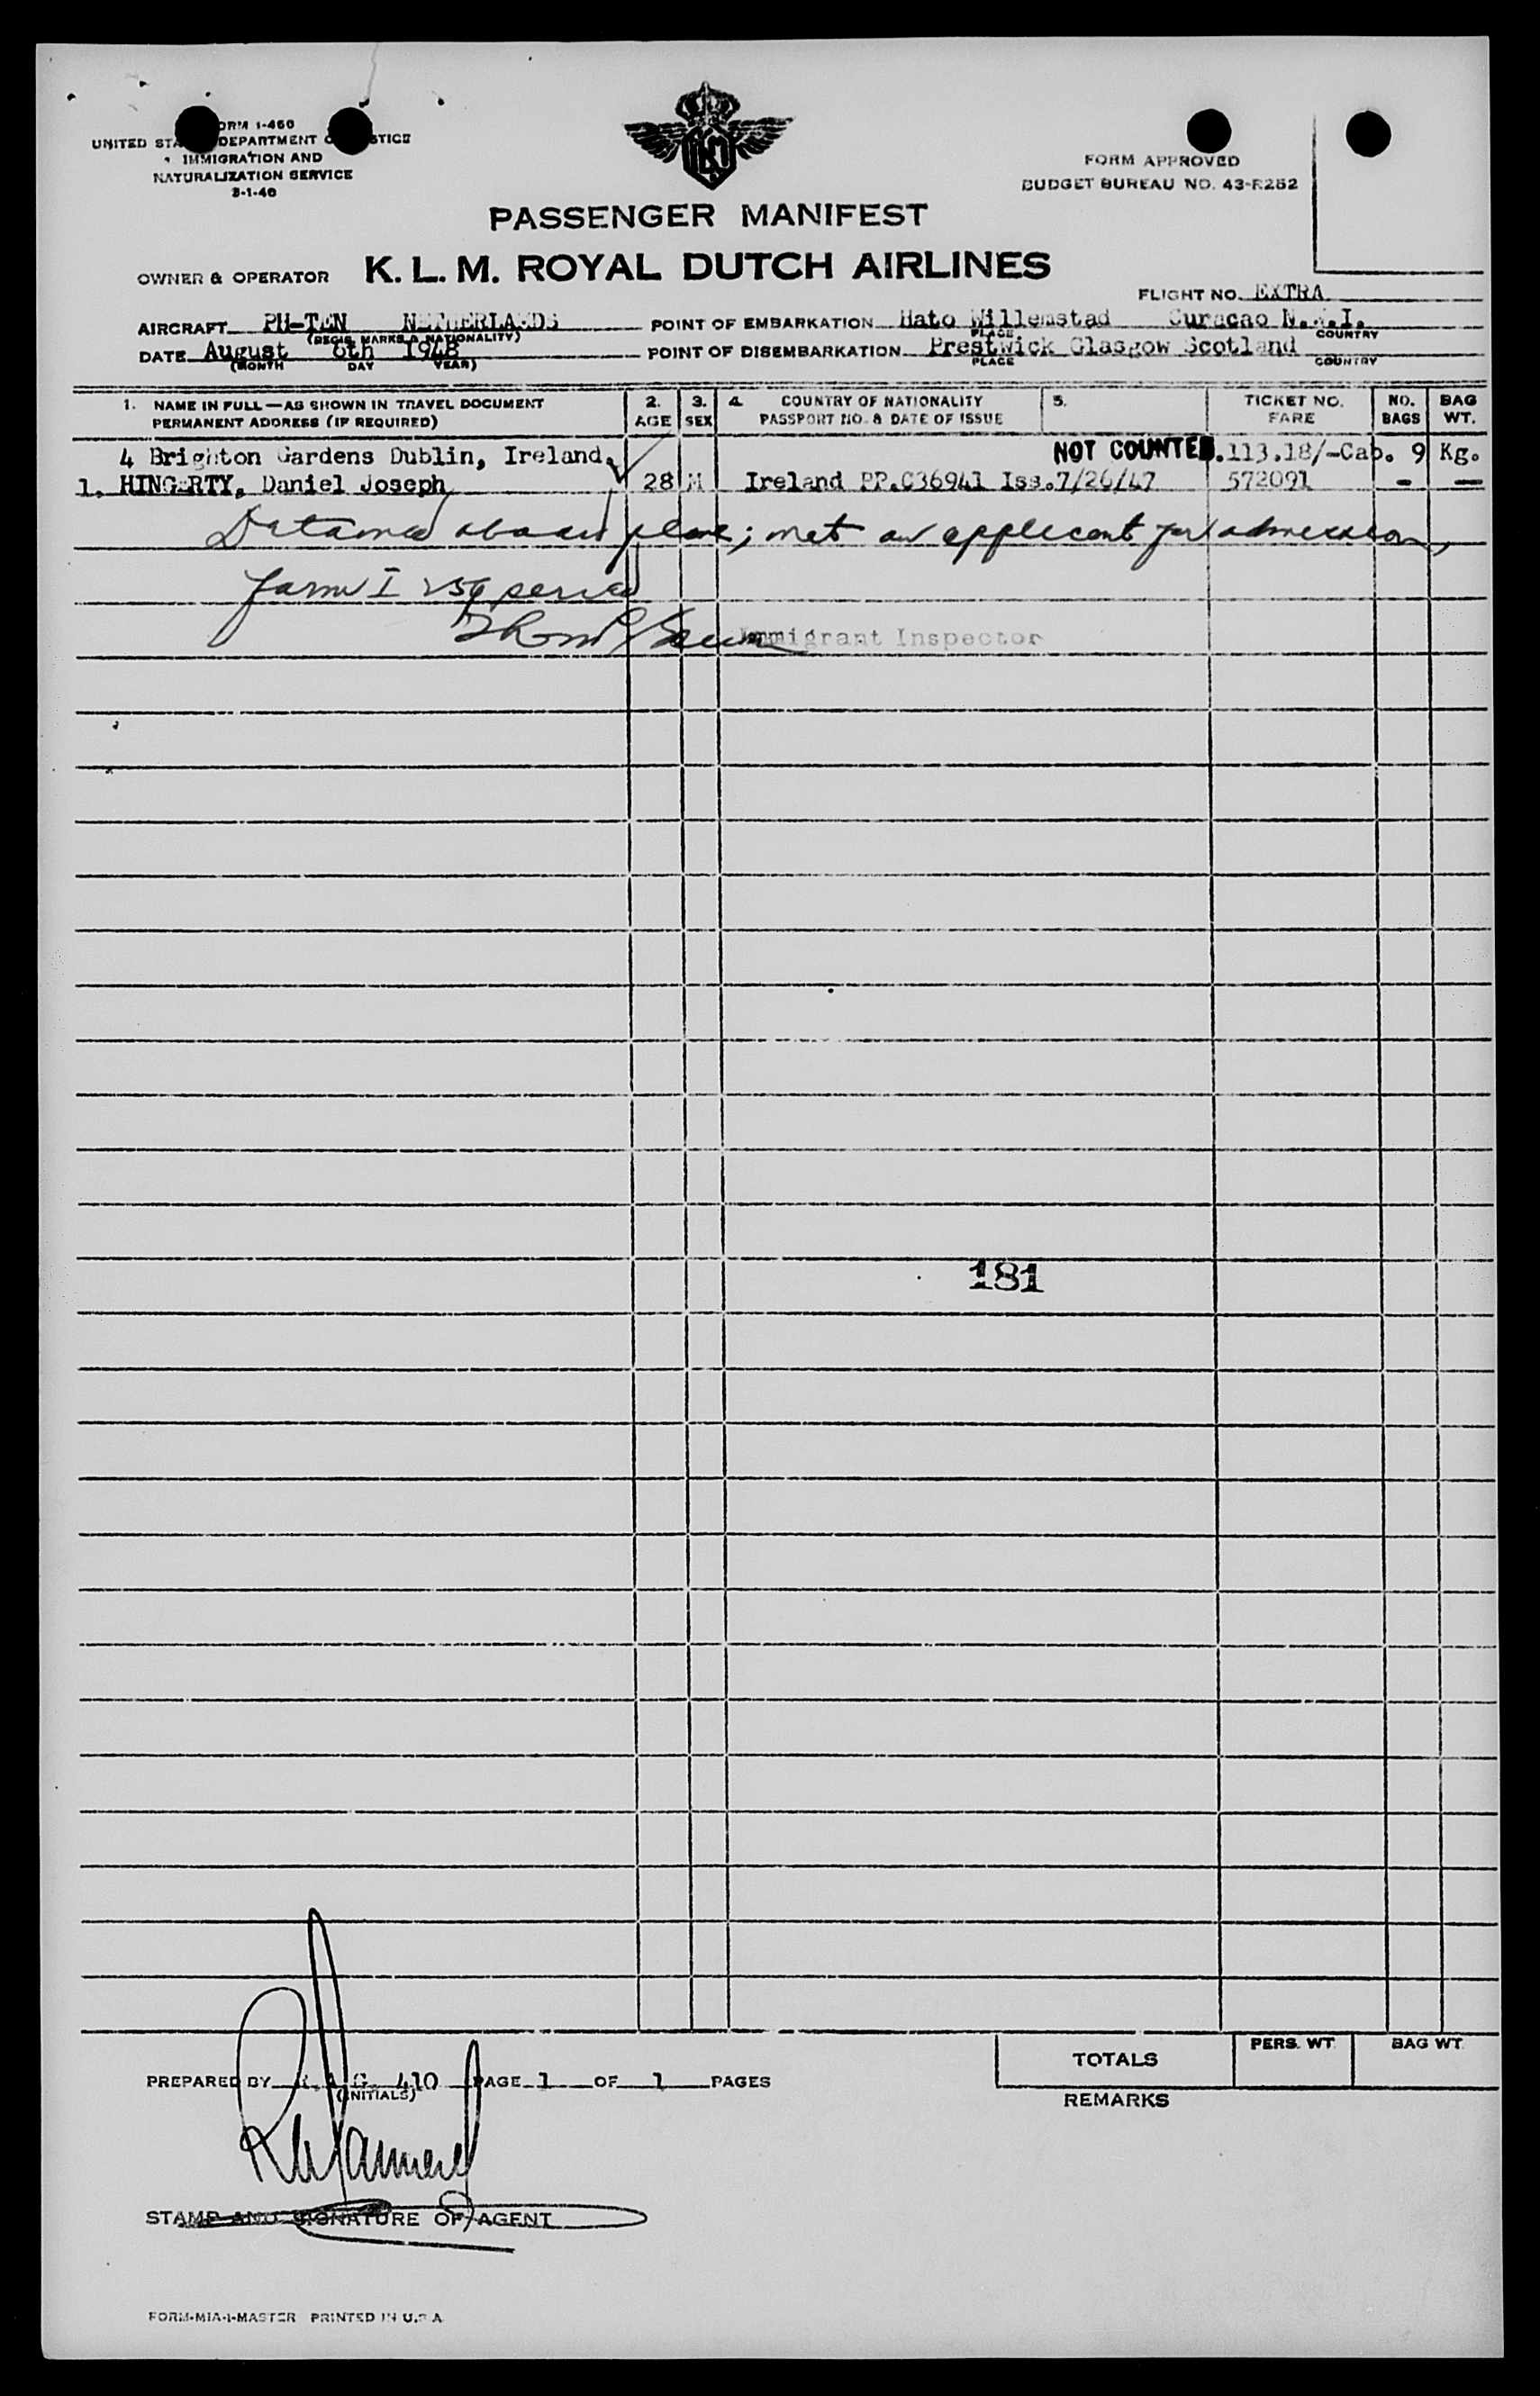 FORM I-466
UNITED STATES DEPARTMENT OF JUSTICE
IMMIGRATION AND
NATURALIZATION SERVICE
KLM
FORM APPROVED
BUDGET BUREAU NO. 43-R252
PASSENGER MANIFEST
OWNER & OPERATOR K. L. M. ROYAL DUTCH AIRLINES
FLIGHT NO. EXTRA
AIRCRAFT PH-TEN NETHERLANDS POINT OF EMBARKATION Hato Willemstad Curacao N.W.I.
(REGIS. MARKS & NATIONALITY) PLACE COUNTRY
DATE August 6th 1948 POINT OF DISEMBARKATION Prestwick Glasgow Scotland
(MONTH DAY YEAR) PLACE COUNTRY
1. NAME IN FULL—AS SHOWN IN TRAVEL DOCUMENT 2. 3. 4. COUNTRY OF NATIONALITY 5. TICKET NO. NO. BAG
PERMANENT ADDRESS (IF REQUIRED) AGE SEX PASSPORT NO. & DATE OF ISSUE FARE BAGS WT.
4 Brighton Gardens Dublin, Ireland. NOT COUNTED .113.18/-Cab. 9 Kg.
1. HINGERTY, Daniel Joseph 28 M Ireland PP.C36941 Iss.7/26/47 572091 - -
Detained aboard plane; not an applicant for admission,
form I 259 served
Immigrant Inspector
181
TOTALS PERS. WT. BAG WT.
PREPARED BY 410 PAGE 1 OF 1 PAGES
(INITIALS)
REMARKS
STAMP AND SIGNATURE OF AGENT
FORM-MIA-1-MASTER PRINTED IN U.S.A.